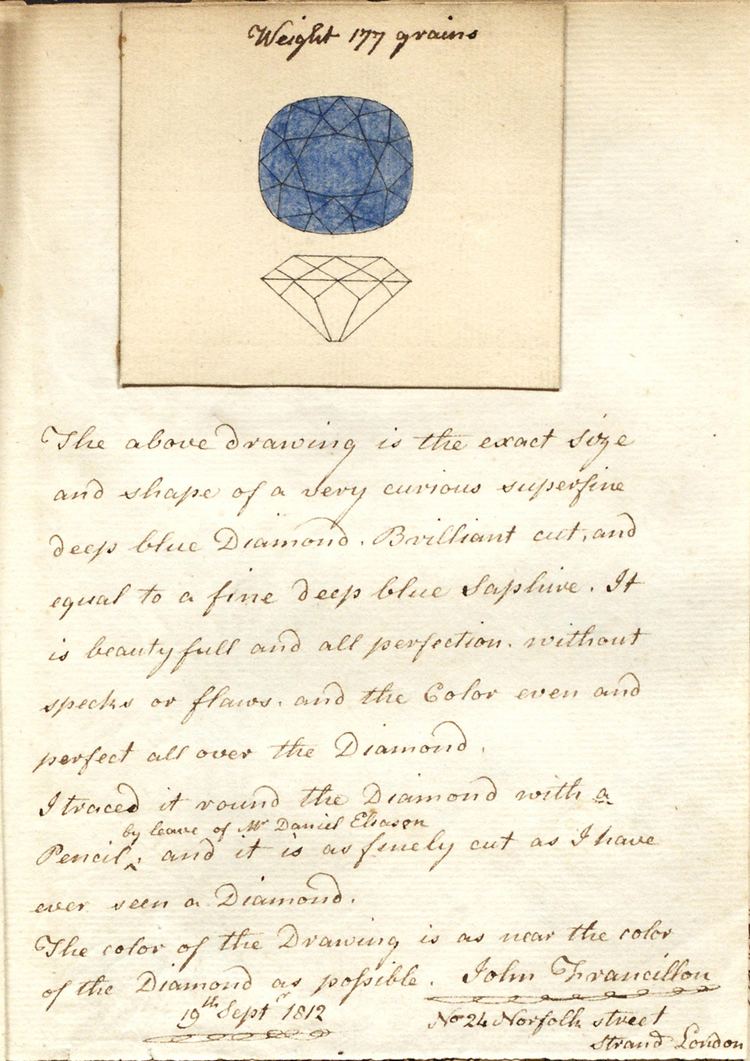 Weight 177 grains
The above drawing is the exact size
and shape of a very curious superfine
deep blue Diamond. Brilliant cut, and
equal to a fine deep blue Saphire. It
is beauty full and all perfection. without
specks or flaws. and the Color even and
perfect all over the Diamond.
I traced it round the Diamond with a
by leave of Mr Daniel Eliason
Pencil ‸, and it is as finely cut as I have
ever seen a Diamond.
The color of the Drawing is as near the color
of the Diamond as poſsible. John Francillon
19th Septr 1812
No 24 Norfolk street
Strand London